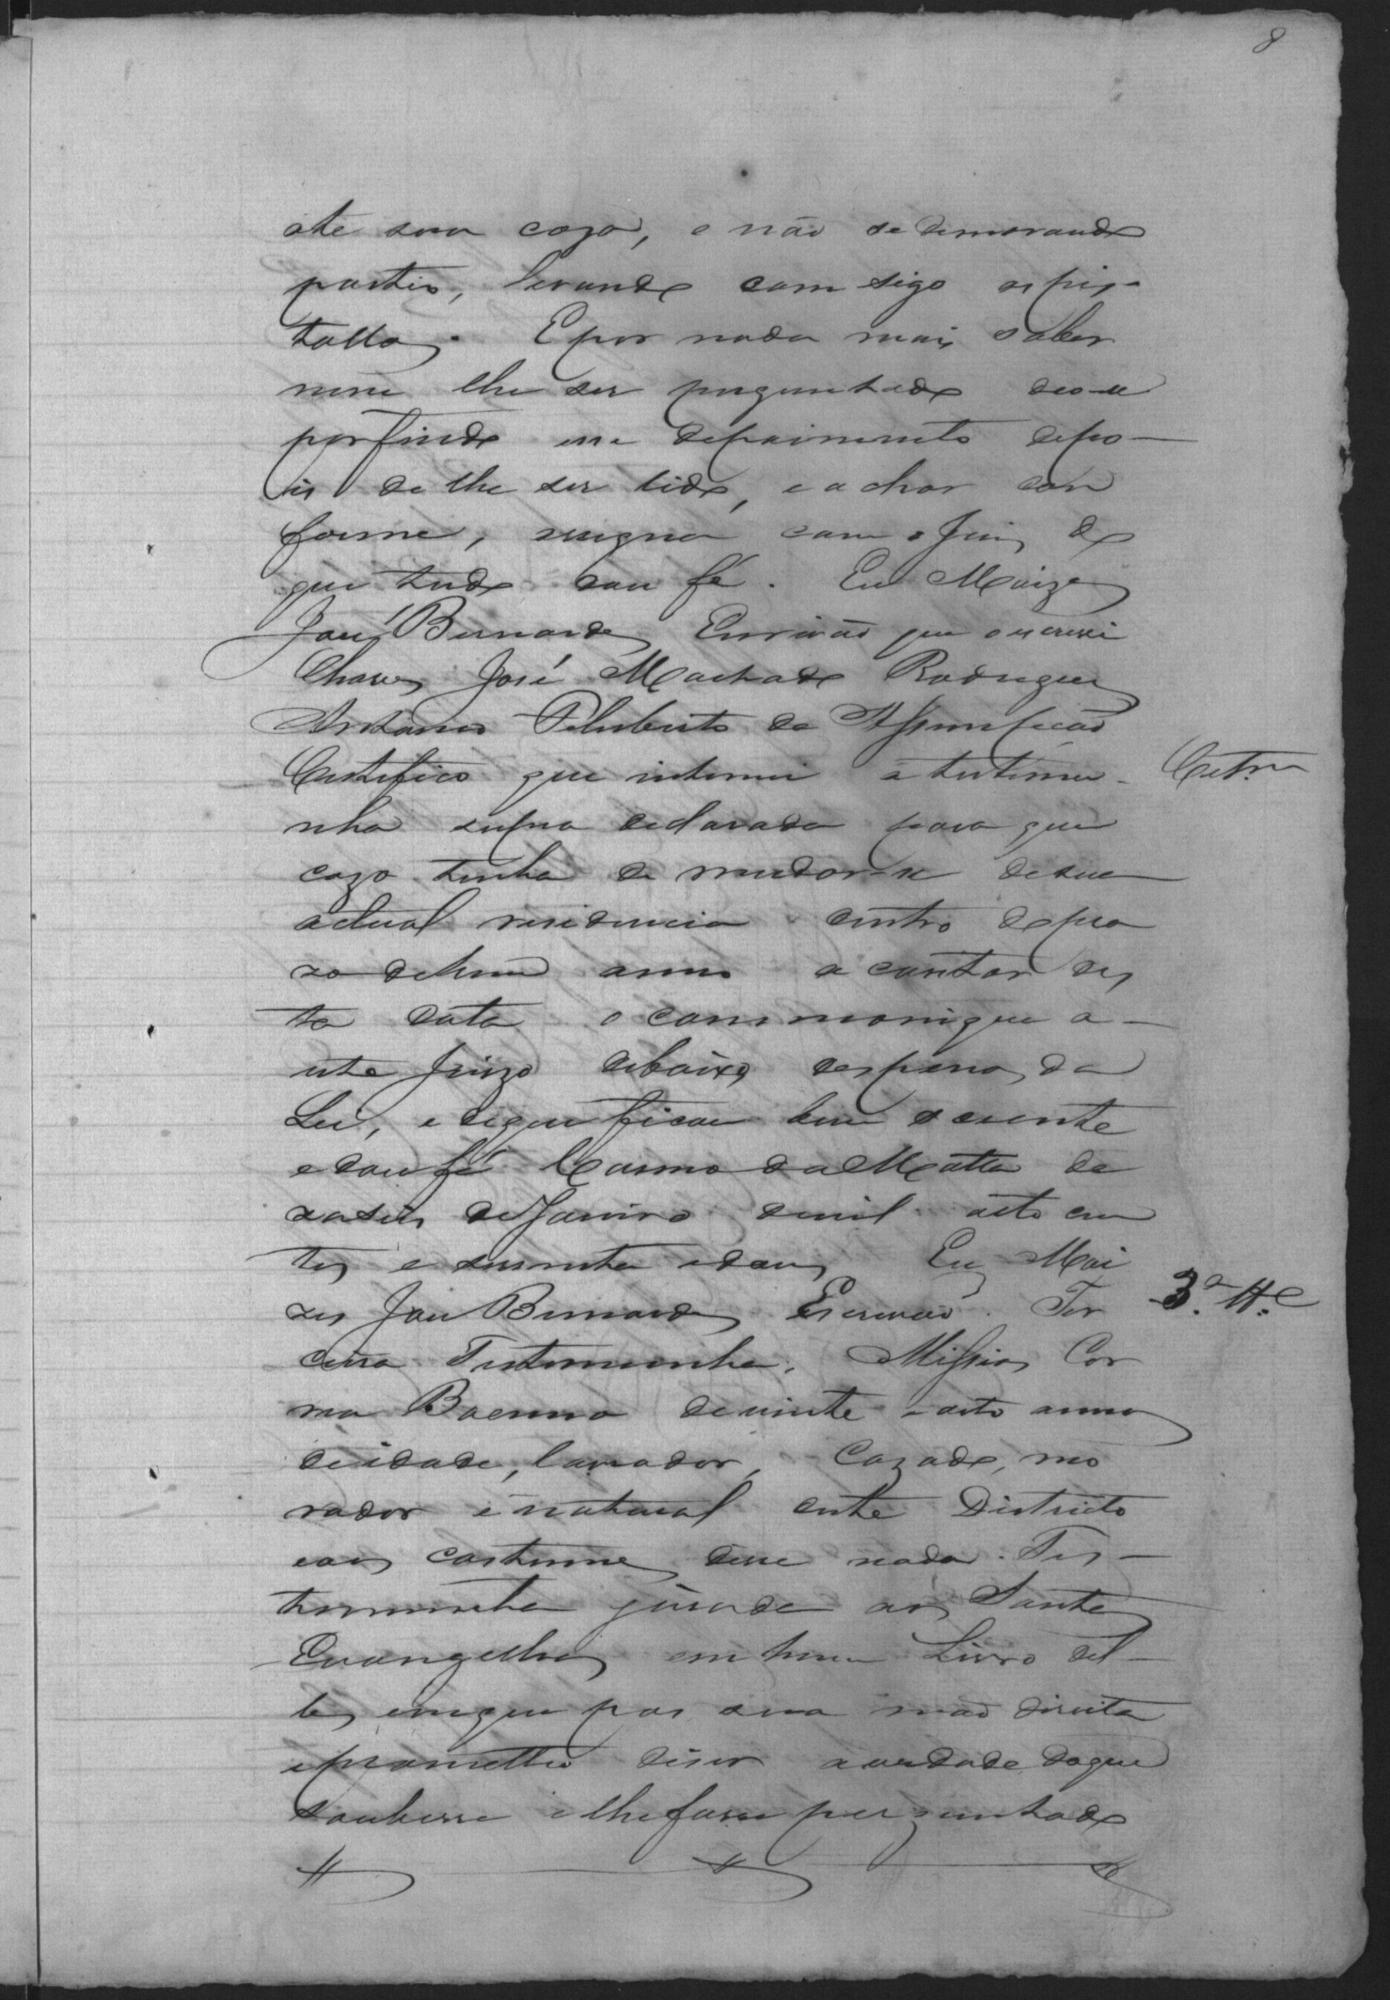 8
até sua caza, e não se demorando
partio, levando com sigo as pis-
tollas. E por nada mais saber
nem lhe ser preguntado deo-se
por findo esse depoimento depo-
is de lhe ser lido, e a char con
forme, assigna com o Juis do
que tudo dou fé. Eu Moizes
José Bernardes Escrivão que o escrevi
Chaves José Machado Rodrigues
Antonio Feluberto de Assumpção
Certifico que intimei a testemu-
nha supra declarada para que
cazo tenha de mudar-se de sua
actual residencia dentro do pra
zo de hum anno a contar des
ta data o communique a-
este Juizo debaixo das penas da
Lei, e de que ficou bem sciente
e dou fé Carmo da Matta de
zaseis de Janeiro de mil oito cen
tos e secenta e dous Eu Moi
zes José Bernardes Escrivão. Ter
ceira Testemunha. Messias Cor
rea Baenno de vinte e oito annos
de idade, lavrador, Cazado, mo
rador e natural deste Districto
e aos costumes disse nada. Tes-
temunha jurada aos Santos
Evangelhos em hum Livro del-
les em que pos sua mão direita
e prometteo diser a verdade do que
soubesse e lhe fosse perguntado
Cert.am
3.a tt.e